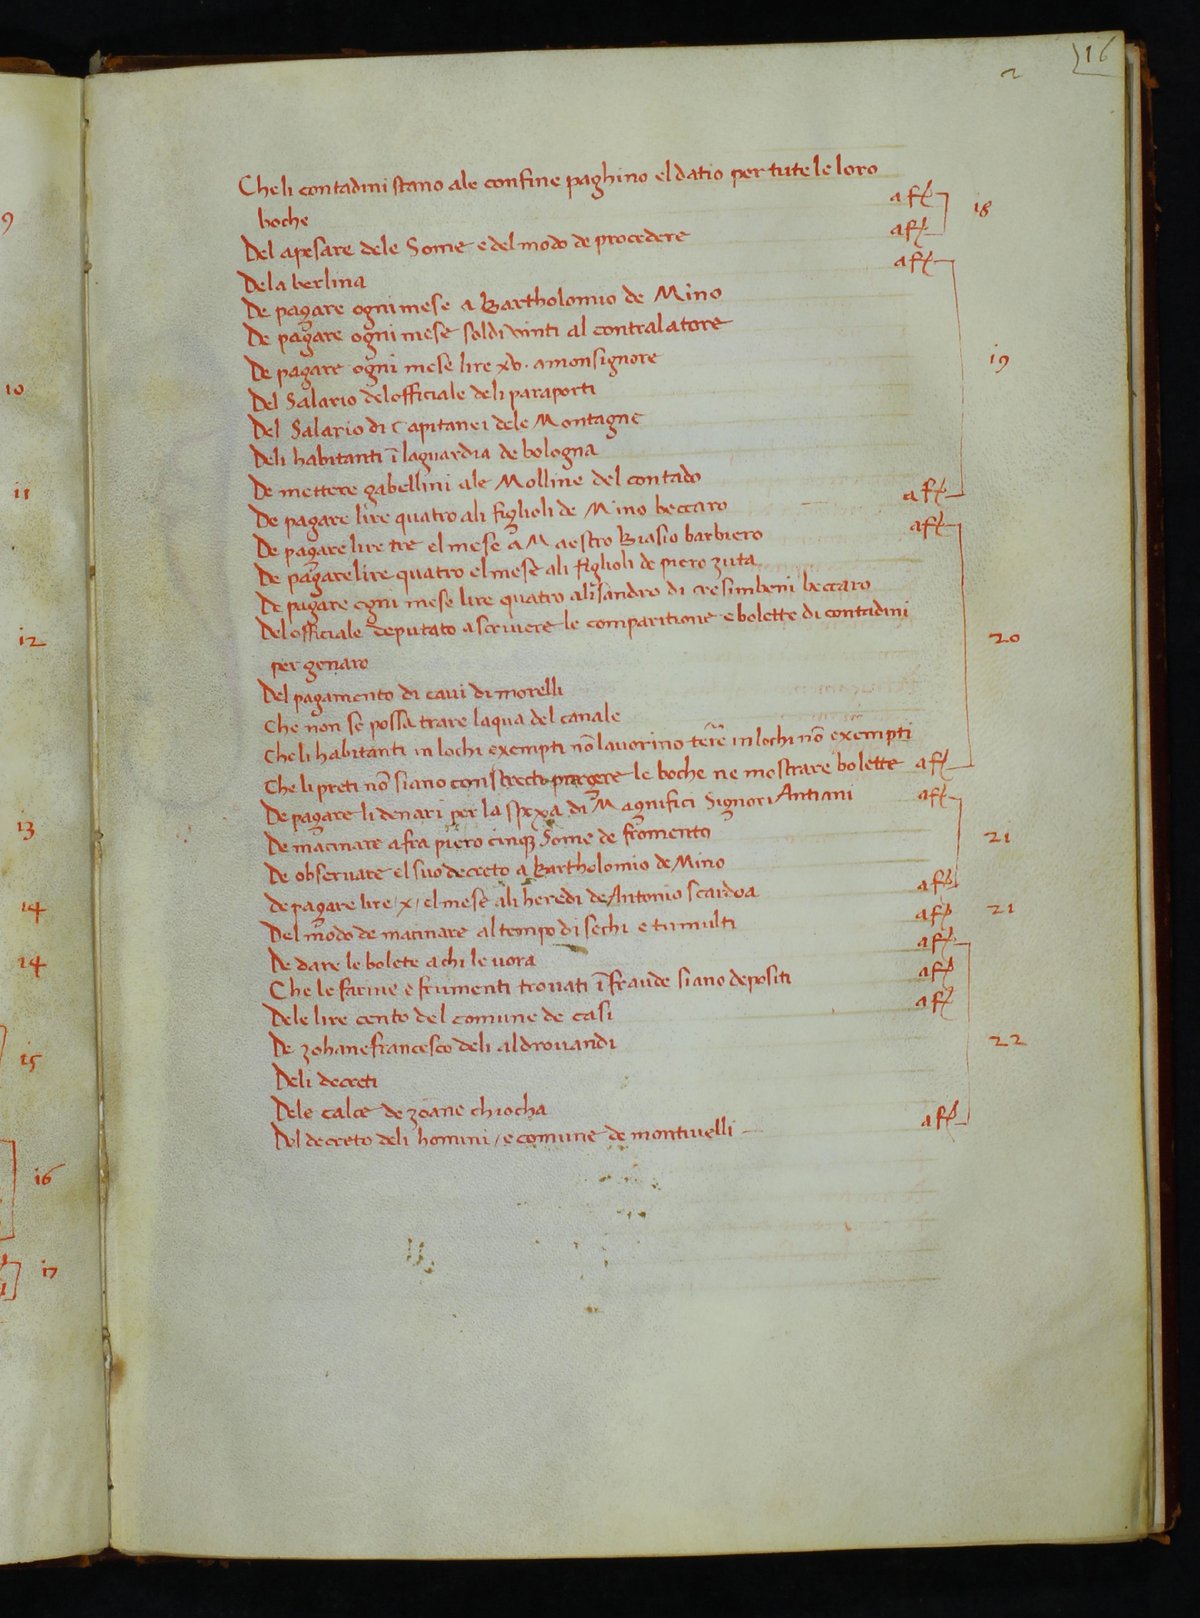 2 16
Che li contadini stano ale confine paghino el datio per tute le loro
boche af 18
Del apesare dele Some e del modo de procedere af
Dela berlina af
De pagare ogni mese a Bartholomio de Mino
De pagare ogni mese soldi vinti al contralatore
De pagare ogni mese lire xv. a monsignore 19
Del Salario del officiale deli paraporti
Del Salario di Capitanei dele Montagne
Deli habitanti ī la guardia de bologna
De mettere gabellini ale Molline del contado
De pagare lire quatro ali figlioli de Mino beccaro af
De pagare lire tre el mese a Maestro Biasio barbiero af
De pagare lire quatro el mese ali figlioli de piero zuta
De pagare ogni mese lire quatro alisandro di cresimbeni beccaro
Del officiale deputato a scrivere le comparitione e bolette di contadini 20
per genaro
Del pagamento di cavi di morelli
Che non se possa trare laqua del canale
Che li habitanti in lochi exempti nō lavorino terē in lochi nō exempti
Che li preti nō siano constrecti porgere le boche ne mostrare bolette af
De pagare li denari per la spexa di Magnifici Signori Antiani af
De macinare a fra piero cinq Some de fromento 21
De observare el suo decreto a Bartholomio de Mino
de pagare lire x el mese ali heredi de Antonio scardoa af
Del modo de macinare al tempo di sechi e tumulti af 21
De dare le bolete a chi le vora af
Che le farine e frumenti trovati ī fraude siano depositi af
Dele lire cento del comune de casi af
De zohanefrancesco deli aldrovandi 22
Deli decreti
Dele calce de zoane chiocha
Del decreto deli homini / e comune de montivelli af
9
10
11
12
13
14
14
15
16
17